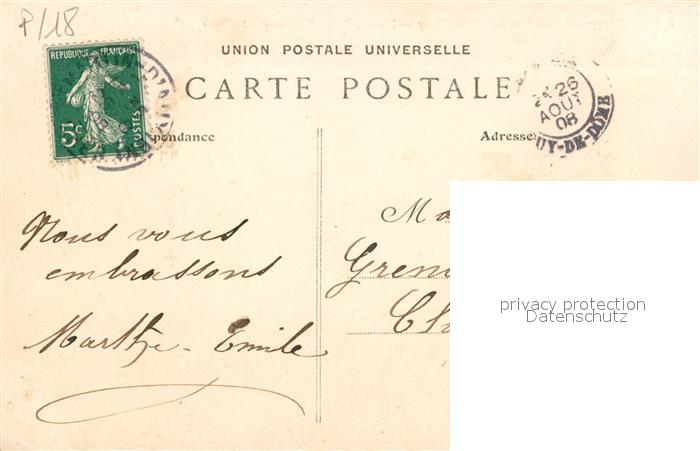 P/18
UNION POSTALE UNIVERSELLE
CARTE POSTALE
REPUBLIQUE FRANÇAISE
5c
POSTES
26
AOUT
08
UY-DE-DOME
pondance
Adresse
Nous vous
embrassons
Marthe - Emile
Ma
Gren
Cl
privacy protection
Datenschutz